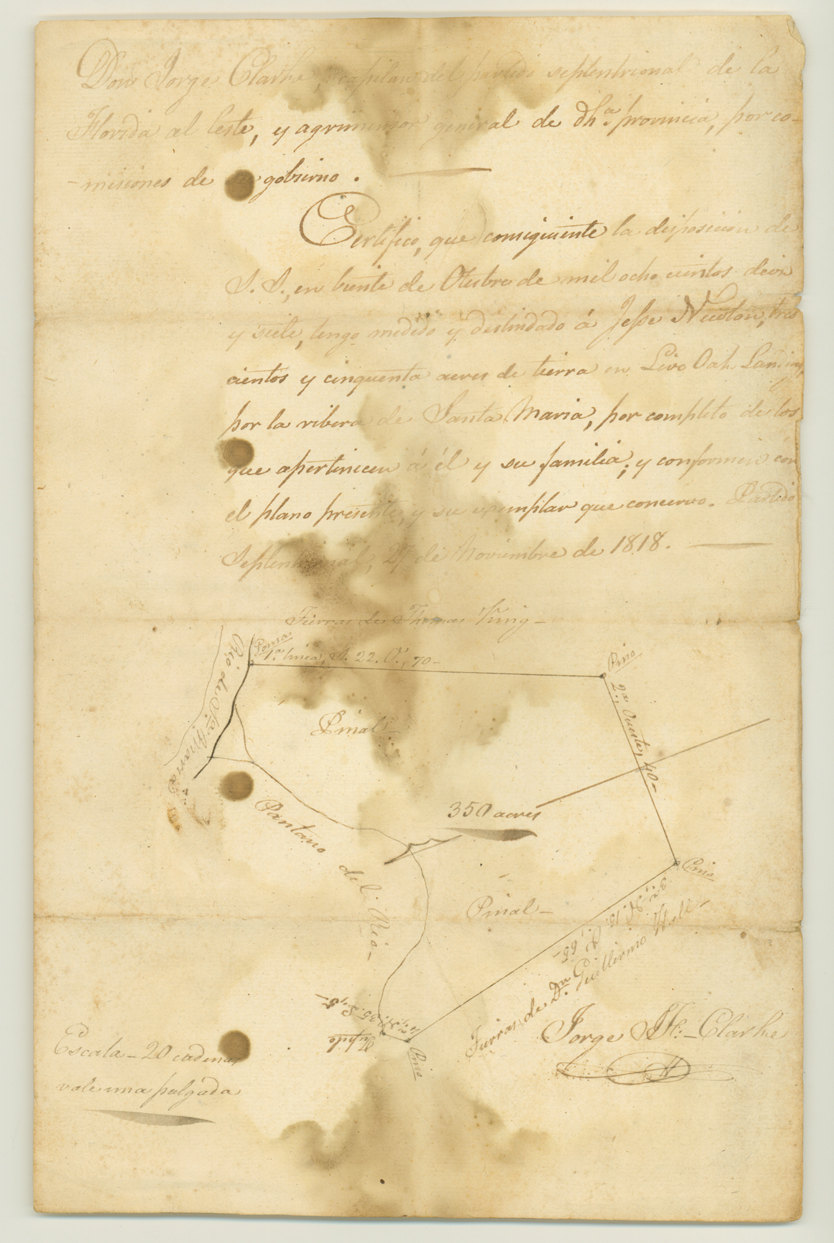 Don Jorge Clarke, capitan del partido septentrional de la
Florida al leste, y agrimensor general de dhᵃ. provincia, por co-
-misiones de gobierno.
Certifico, que consiguiente la disposicion de
S. S., en biente de Otubre de mil ocho cientos
y siete, tengo medido y deslindado á Jesse Newton, tres
cientos y cinquenta acres de tierra en Live Oak Landing,
por la ribera de Santa Maria, por completo de los
que apertenecen á él y su familia; y conforme con
el plano presente, y su exemplar que concervo. Partido
Septentrional, de Noviembre de 1818.
Tierras de Thomas King-
1ᵃ. linea, N. 22. O., 70-
Pino
Rio de Sta. Maria
Pinal
2ᵃ. Oueste, 40-
350 acres
Pantano del Rio-
Pino
Pinal-
Tierras de Dn. Guillermo Hall
Pino
Escala - 20 cadenas
vale una pulgada
Jorge J. F. Clarke